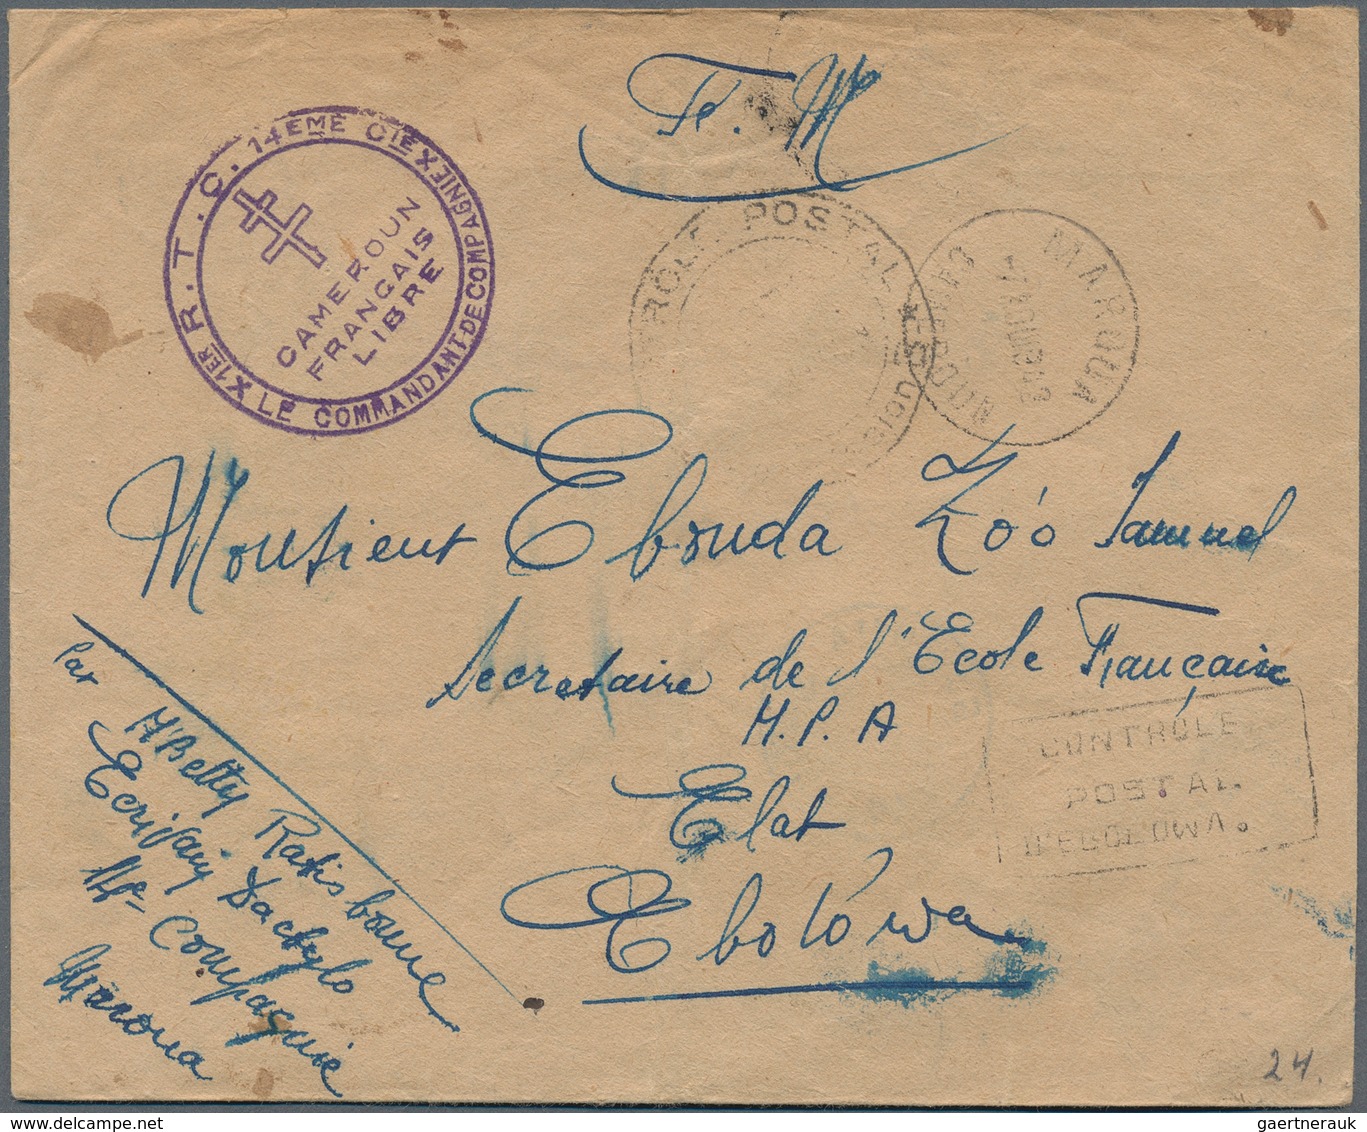 Fr. M
X 1ER R.T.C. 14EME CIE X LE COMMANDANT-DE COMPAGNIE X
CAMEROUN
FRANCAIS
LIBRE
POSTAL
MAROUA
CAMEROUN
Monsieur Ebouda Zo'o Samuel
Secretaire de l'École Française
M.P.A
Elat
Ebolówa
CONTROLE
POSTAL
D'EBOLOWA.
Par M'Betty Ratisbonne
Ecrivain Dactylo
14e Compagnie
Maroua
24.
gaertnerauk